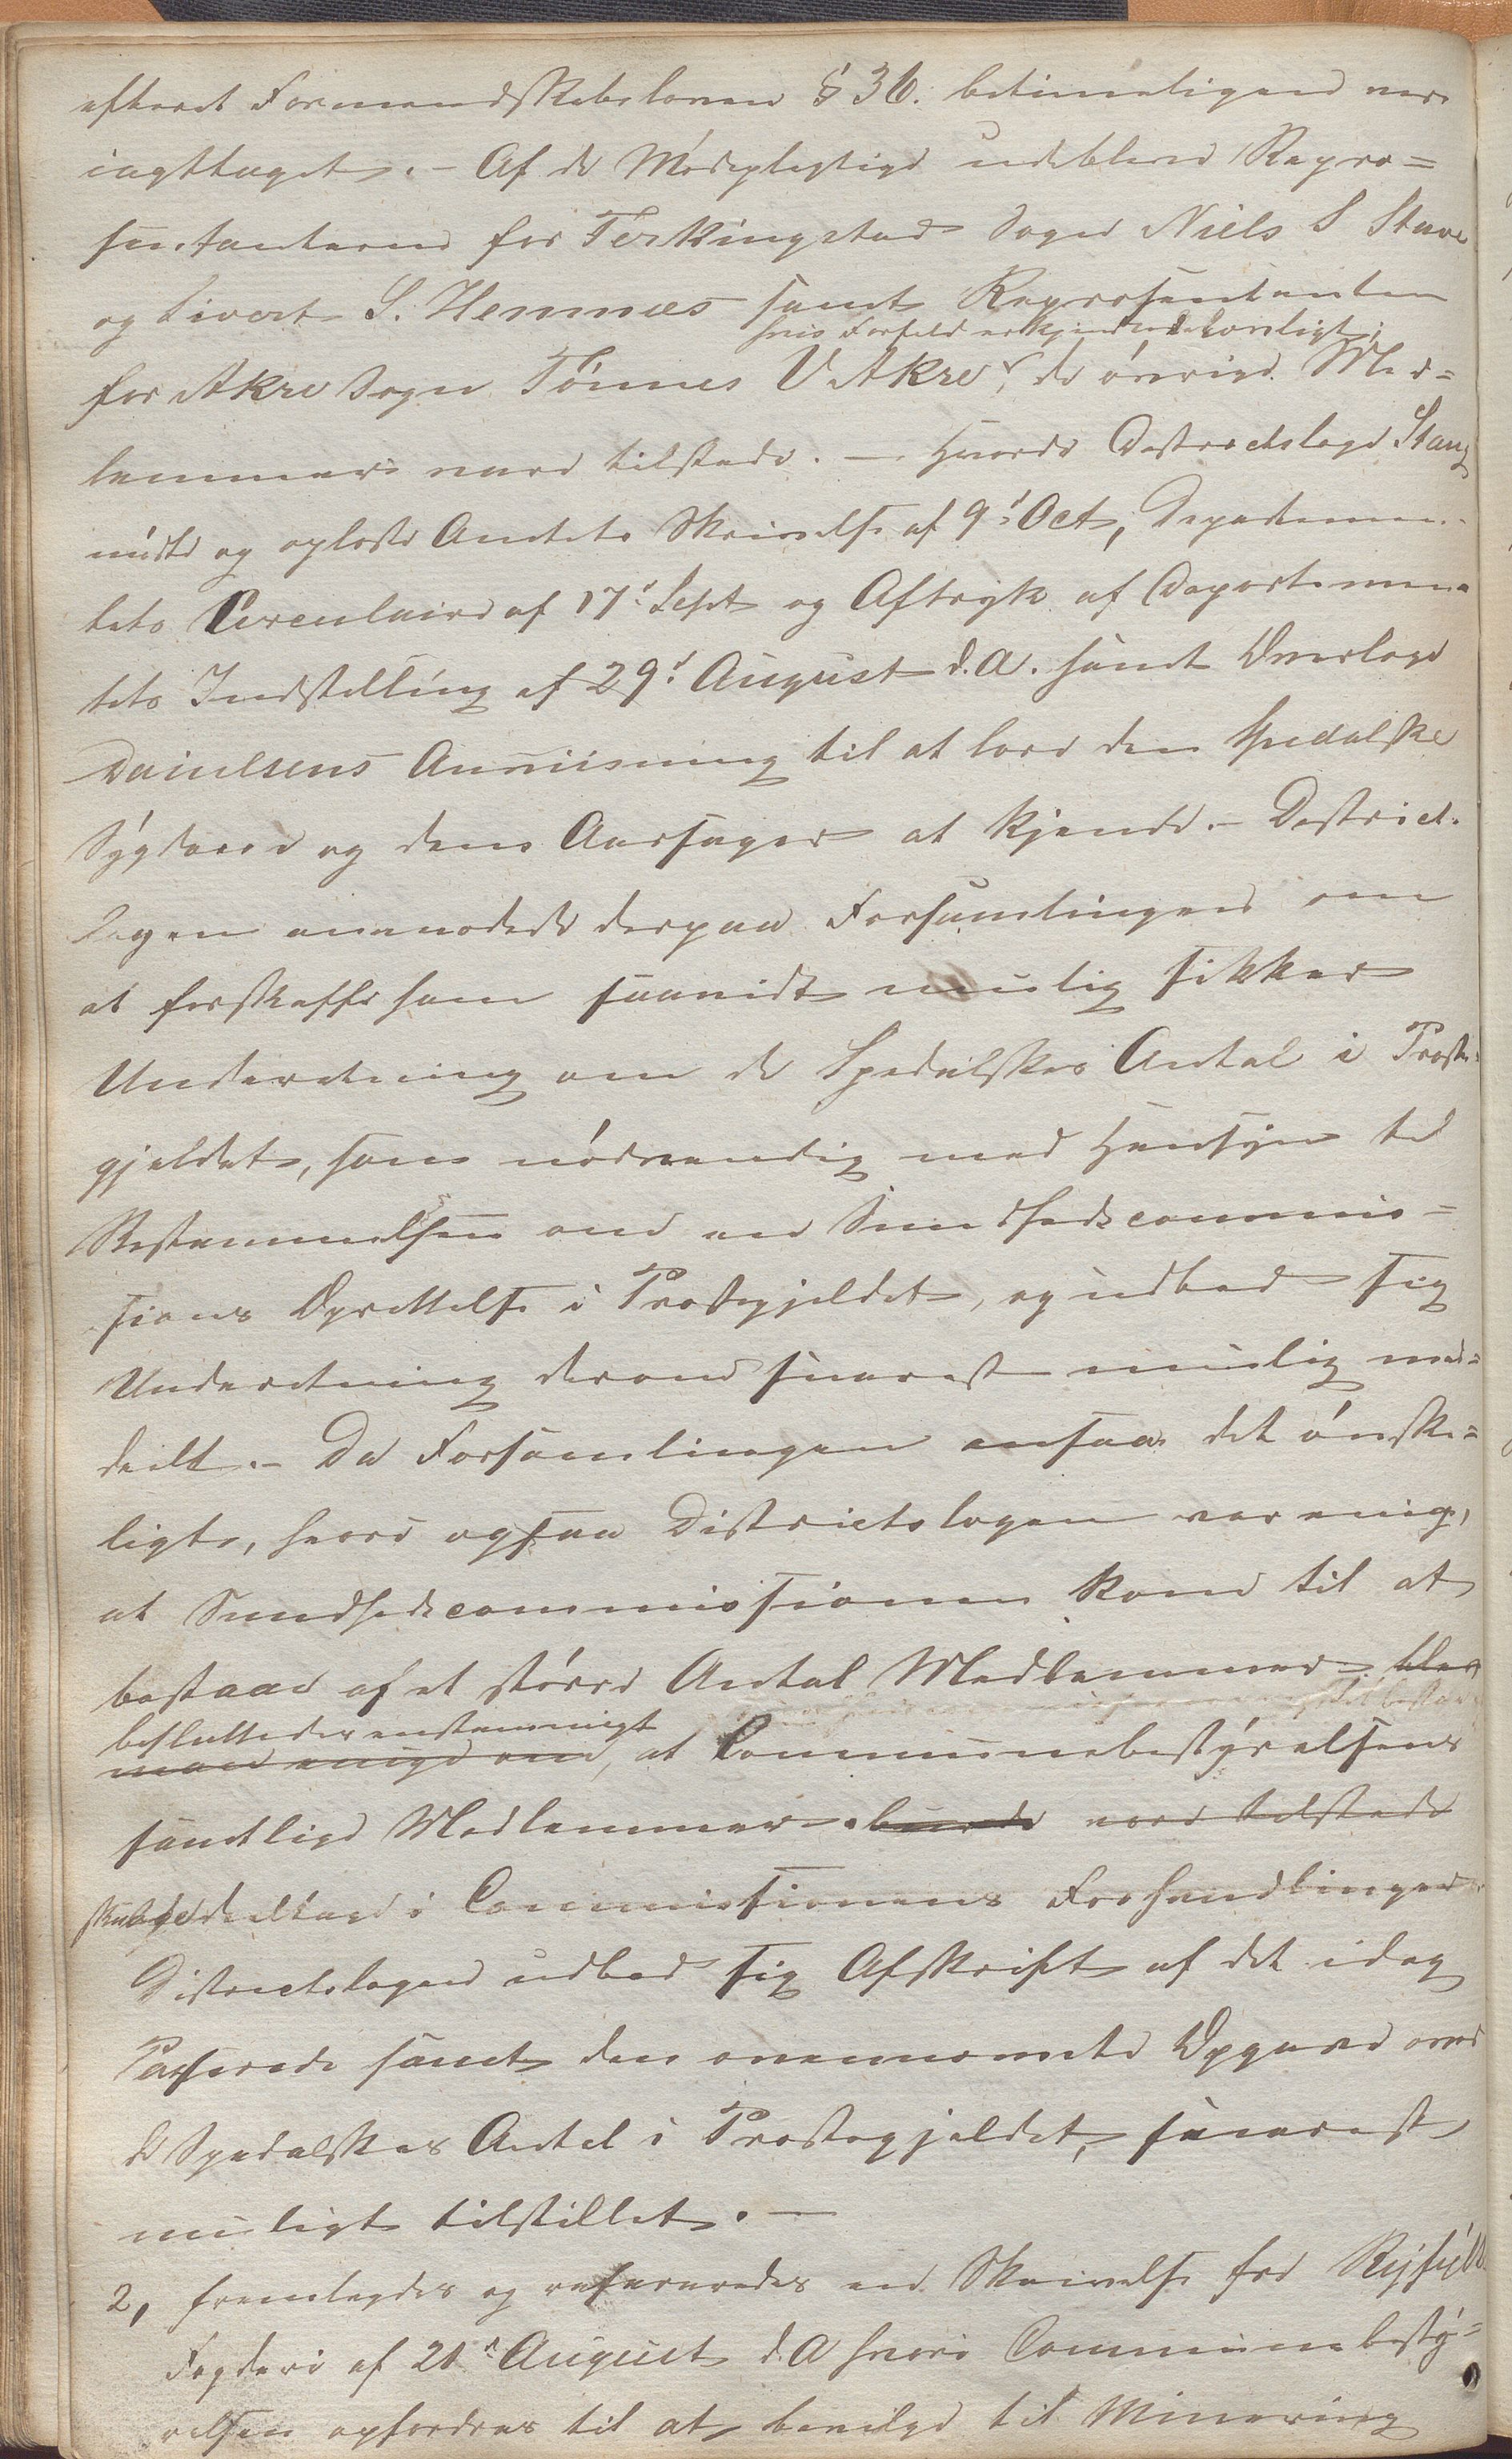 efteret Formandskabsloven § 36. betimeligen var
iagttaget. - Af de Mødepligtige udebleve Repræ=
sentanterne for Ferkingstad Sogn Niels S Stave
og Sivert S. Hemnæs samt Repræsentanten
hvis Forfald erkjendtes lovligt;
for Akre Sogn Tønnes V Akre, de øvrige Med=
lemmer vare tilstede. - Hvorda Districtslæge Stang
mødte og oplæste Amtets Skrivelse af 9de Oct, Departemen-
tets Circulaire af 17de Sept og Aftryk af Departemen-
tets Indstilling af 29de August d. A. samt Overlæge
Danielsens Anviisning til at lære den spedalske
Sygdom og dens Aarsager at kjende. - District-
lægen anmodede derpaa Forsamlingen om
at forskaffe ham saavidt mulig sikker
Underretning om de Spedalskes Antal i Præste-
gjeldet, som nødvendig med Hensyn til
Bestemmelsen om en Sundhedscommis=
sions Oprettelse i Præstegjeldet, og udbad sig
Underretning derom snarest mulig med=
deelt. - Da Forsamlingen ansaae det ønske=
ligt, hvori ogsaa Districtslægen var enig,
at Sundhedscommissionen kom til at
bestaae af et større Antal Medlemmer blev
besluttedes enstemmigt
man enige om, at Communebestyrelsens
samtlige Medlemmer burde være tilstede
skulde deeltage i Commissionens Forhandlinger.
Districtslægen udbad sig Afskrift af det idag
Passerede samt den ovennævnte Opgave over
de Spedalskes Antal i Præstegjeldet, snarest
muligt tilstillet. -
2, fremlagdes og refereredes en Skrivelse fra Ryfylke
Fogderi af 21de August d. A hvori Communebesty=
relsen opfordres til at bevilge til Minering